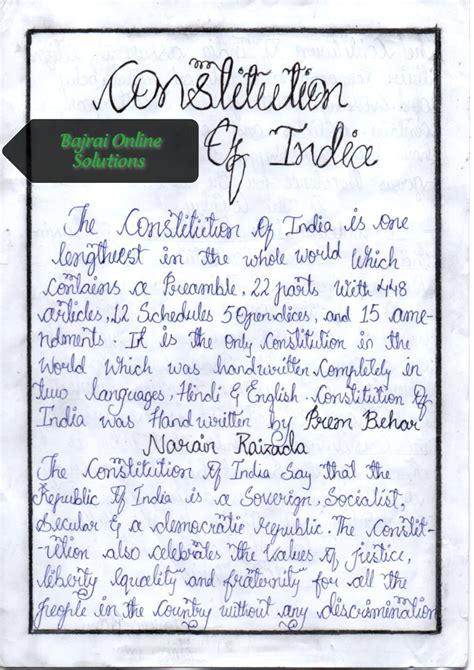 Constitution
Of India
Bajrai Online
Solutions
The Constitution Of India is one
lengthiest in the whole world which
Contains a Preamble, 22 parts With 448
articles, 12 Schedules 5 Opendices, and 15 ame-
ndments. It is the only Constitution in the
World Which was handwritten Completely in
two languages, Hindi & English. Constitution Of
India was Hand written by Prem Behar
Narain Raizada
The Constitution Of India Say that the
Republic Of India is a Soverign, Socialist,
Secular & a democratic republic. The Constit-
-ution also celebrates the Values of justice,
liberty equality and fraternity for all the
people in the Country without any discrimination